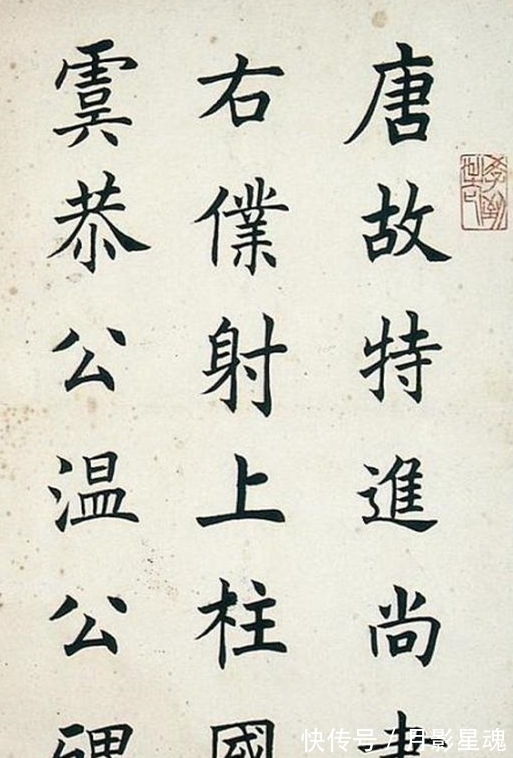 唐故特進尚書
右僕射上柱國
虞恭公温公碑
快传号/月影星魂